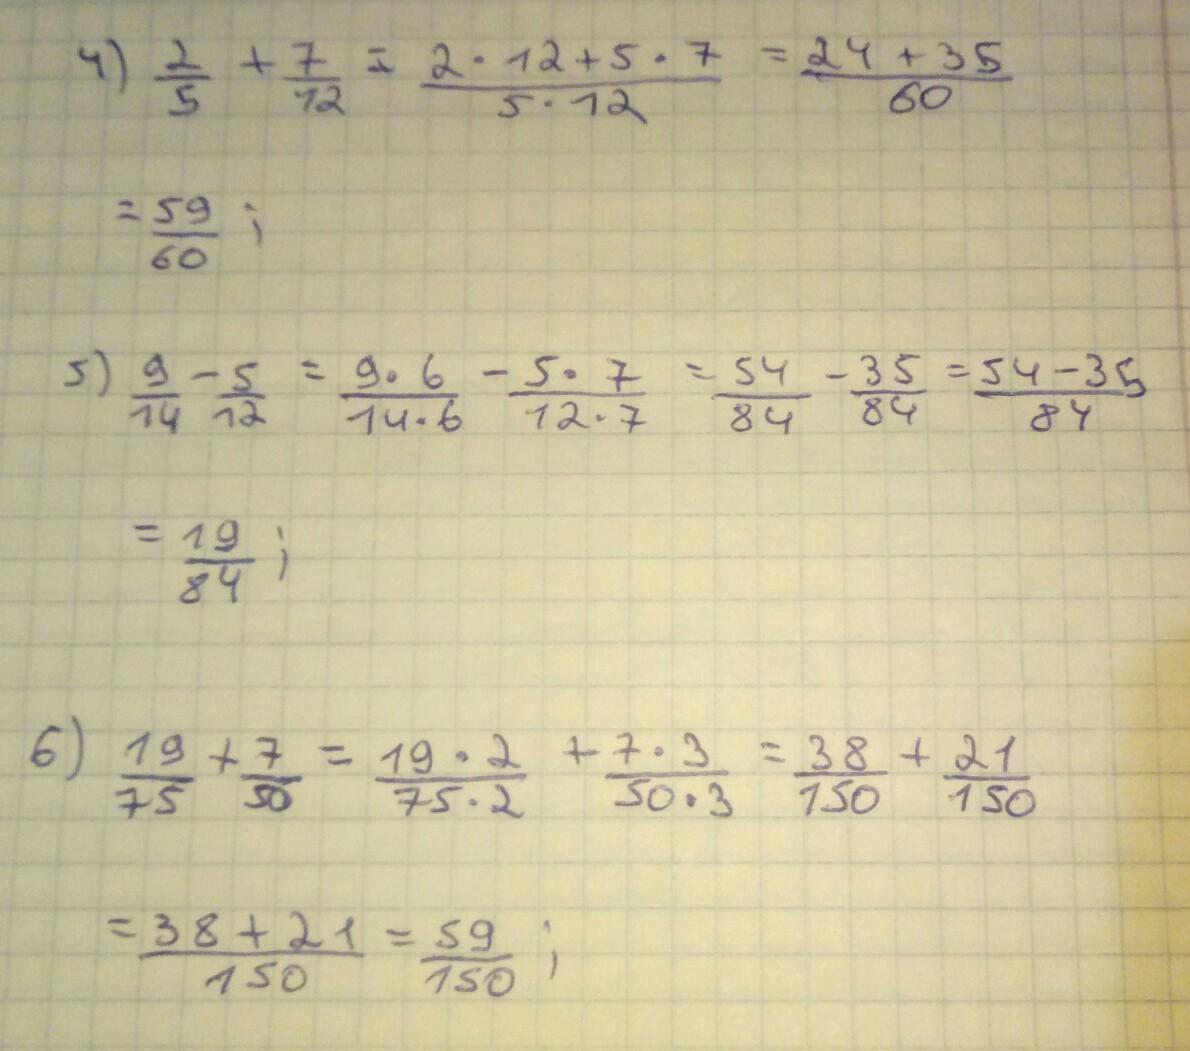 4) 2/5 + 7/12 = (2·12+5·7)/(5·12) = (24+35)/60
= 59/60 ;
5) 9/14 - 5/12 = (9·6)/(14·6) - (5·7)/(12·7) = 54/84 - 35/84 = (54-35)/84
= 19/84 ;
6) 19/75 + 7/50 = (19·2)/(75·2) + (7·3)/(50·3) = 38/150 + 21/150
= (38+21)/150 = 59/150 ;